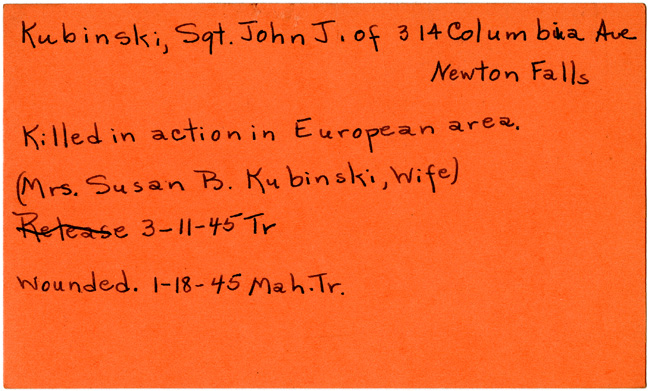 Kubinski, Sgt. John J. of 314 Columbia Ave
Newton Falls
Killed in action in European area.
(Mrs. Susan B. Kubinski, Wife)
Release 3-11-45 Tr
Wounded. 1-18-45 Mah. Tr.